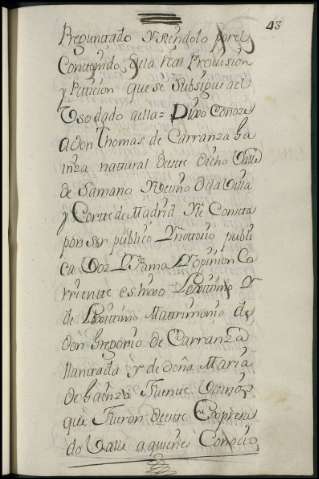 43
Preguntado Siréndolo por el
Contenido, de la Real Provision
y Peticion que se subsiguió al
uso dado a ella = Dixo Conoze
a don Thomas de Carranza ba
inza natural de este dicho Valle
de Samano Vecino de la Villa
y Corte de Madrid le Consta
por ser publico Y notorio publi
ca Voz Y fama Y opinion Co
rriente es hijo Lexitimo Y
de Lexitimo Matrimonio de
don Gregorio de Carranza
Y de doña Maria
de bainza fueron Vezinos
que fueron de este Expresa
do Valle a quienes Conocio